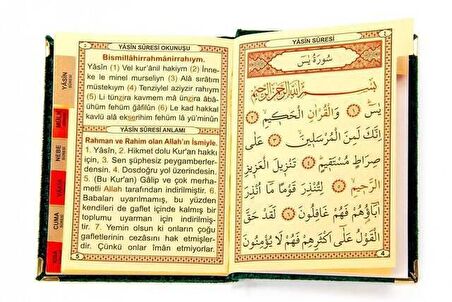 YÂSÎN SÛRESİ OKUNUŞU
Bismillâhirrahmânirrahıym.
Yâsîn (1) Vel kur'ânil hakiym (2) İnne-
ke le minel murseliyn (3) Alâ sıratım
müstekıym (4) Tenziylel aziyzir rahıym
(5) Li tünzira kavmem mâ ünzira âbâ-
ühüm fehüm ğâfilûn (6) Le kad hakkal
kavlü alâ ekserihim fehüm lâ yü'minûn
YÂSÎN SÛRESİ ANLAMI
Rahman ve Rahim olan Allah'ın İsmiyle.
1. Yâsîn. 2. Hikmet dolu Kur'an hakkı
için, 3. Sen şüphesiz peygamberler-
densin. 4. Dosdoğru yol üzerindesin.
5. (Bu Kur'an) Gâlip ve çok merha-
metli Allah tarafından indirilmiştir. 6.
Babaları uyarılmamış, bu yüzden
kendileri de gaflet içinde kalmış bir
toplumu uyarman için indirilmiş-
tir. 7. Yemin olsun ki onların çoğu
gafletlerinin cezasını hak etmişler-
dir. Çünkü onlar îman etmiyorlar.
5
YÂSÎN
MÜLK
NEBE
CUMA
YÂSÎN SÛRESİ
سُورَةُ يٰسٓ
بِسْمِ اللهِ الرَّحْمٰنِ الرَّحِيمِ
يٰسٓ ﴿١﴾ وَالْقُرْاٰنِ الْحَكِيمِ ﴿٢﴾
اِنَّكَ لَمِنَ الْمُرْسَلِينَ ﴿٣﴾ عَلٰى
صِرَاطٍ مُسْتَقِيمٍ ﴿٤﴾ تَنْزِيلَ الْعَزِيزِ
الرَّحِيمِ ﴿٥﴾ لِتُنْذِرَ قَوْمًا مَا اُنْذِرَ
اٰبَاؤُهُمْ فَهُمْ غَافِلُونَ ﴿٦﴾ لَقَدْ حَقَّ
الْقَوْلُ عَلٰى اَكْثَرِهِمْ فَهُمْ لَا يُؤْمِنُونَ
4